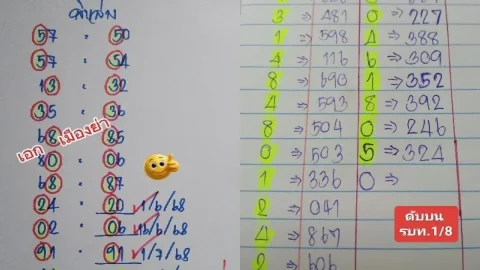 57 = 50
57 = 54
13 = 32
35 = 36
68 = 85
80 = 06
68 = 87
24 = 20 1/6/68
02 = 06 16/6/68
91 = 91 1/7/68
เอก เมืองย่า
3 ⇒ 481
1 ⇒ 598
4 ⇒ 116
8 ⇒ 690
4 ⇒ 593
8 ⇒ 504
0 ⇒ 503
1 ⇒ 336
2 ⇒ 041
4 ⇒ 867
2 ⇒ 606
0 ⇒ 227
4 ⇒ 388
6 ⇒ 309
1 ⇒ 352
8 ⇒ 392
0 ⇒ 246
5 ⇒ 324
0 ⇒
ดับบน
รบท.1/8